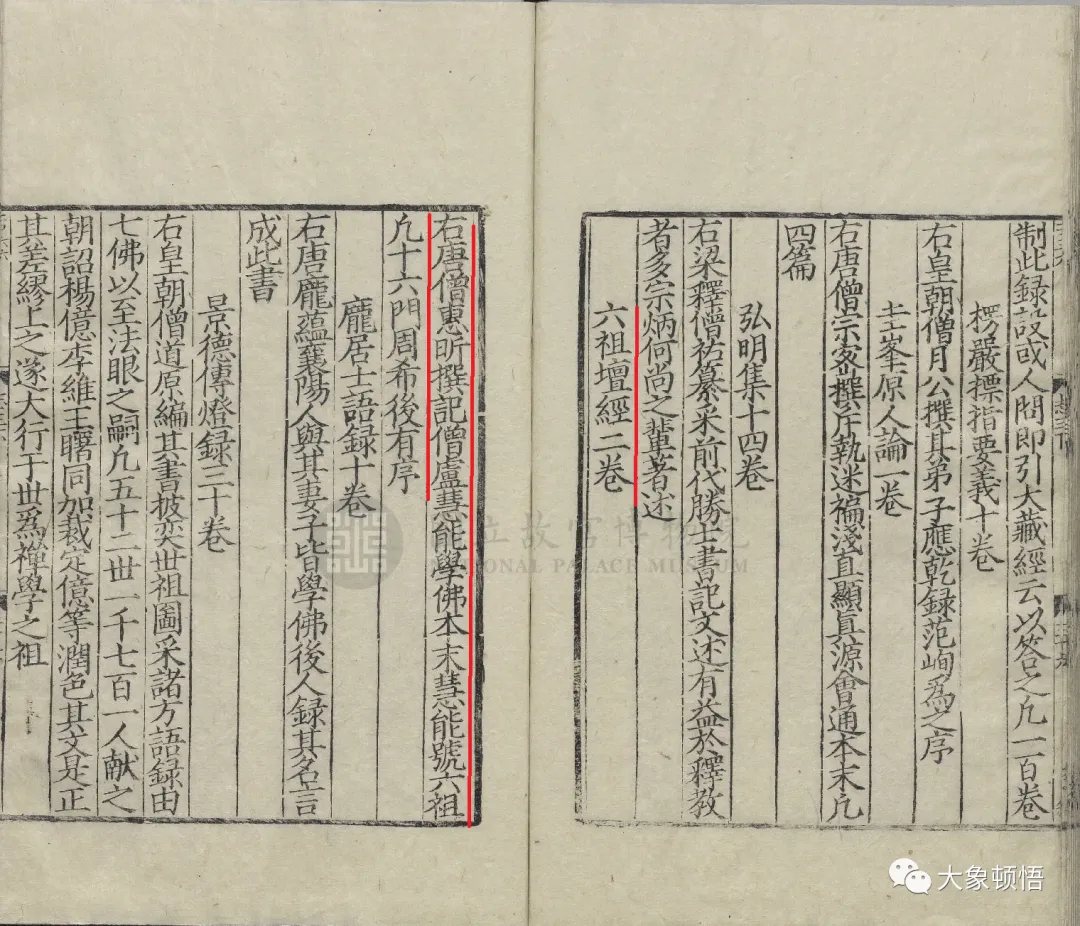 制此録設或人問即引大藏經云以答之凢一百卷
楞嚴摽指要義十卷
右皇朝僧月公撰其弟子應乾録范峋爲之序
圭峯原人論一卷
右唐僧宗密撰斥執迷褊淺直顯真源會通本末凢
四篇
弘明集十四卷
右梁釋僧祐纂采前代勝士書記文述有益於釋教
者多宗炳何尚之輩著述
六祖壇經二卷
右唐僧惠昕撰記僧盧慧能學佛本末慧能號六祖
凢十六門周希後有序
龐居士語録十卷
右唐龐藴襄陽人與其妻子皆學佛後人録其名言
成此書
景德傳燈録三十卷
右皇朝僧道原編其書披奕世祖圖采諸方語録由
七佛以至法眼之嗣凢五十二世一千七百一人献之
朝詔楊億李維王曙同加裁定億等潤色其文是正
其差繆上之遂大行于世爲禪學之祖
國立故宮博物院
NATIONAL PALACE MUSEUM
大象顿悟